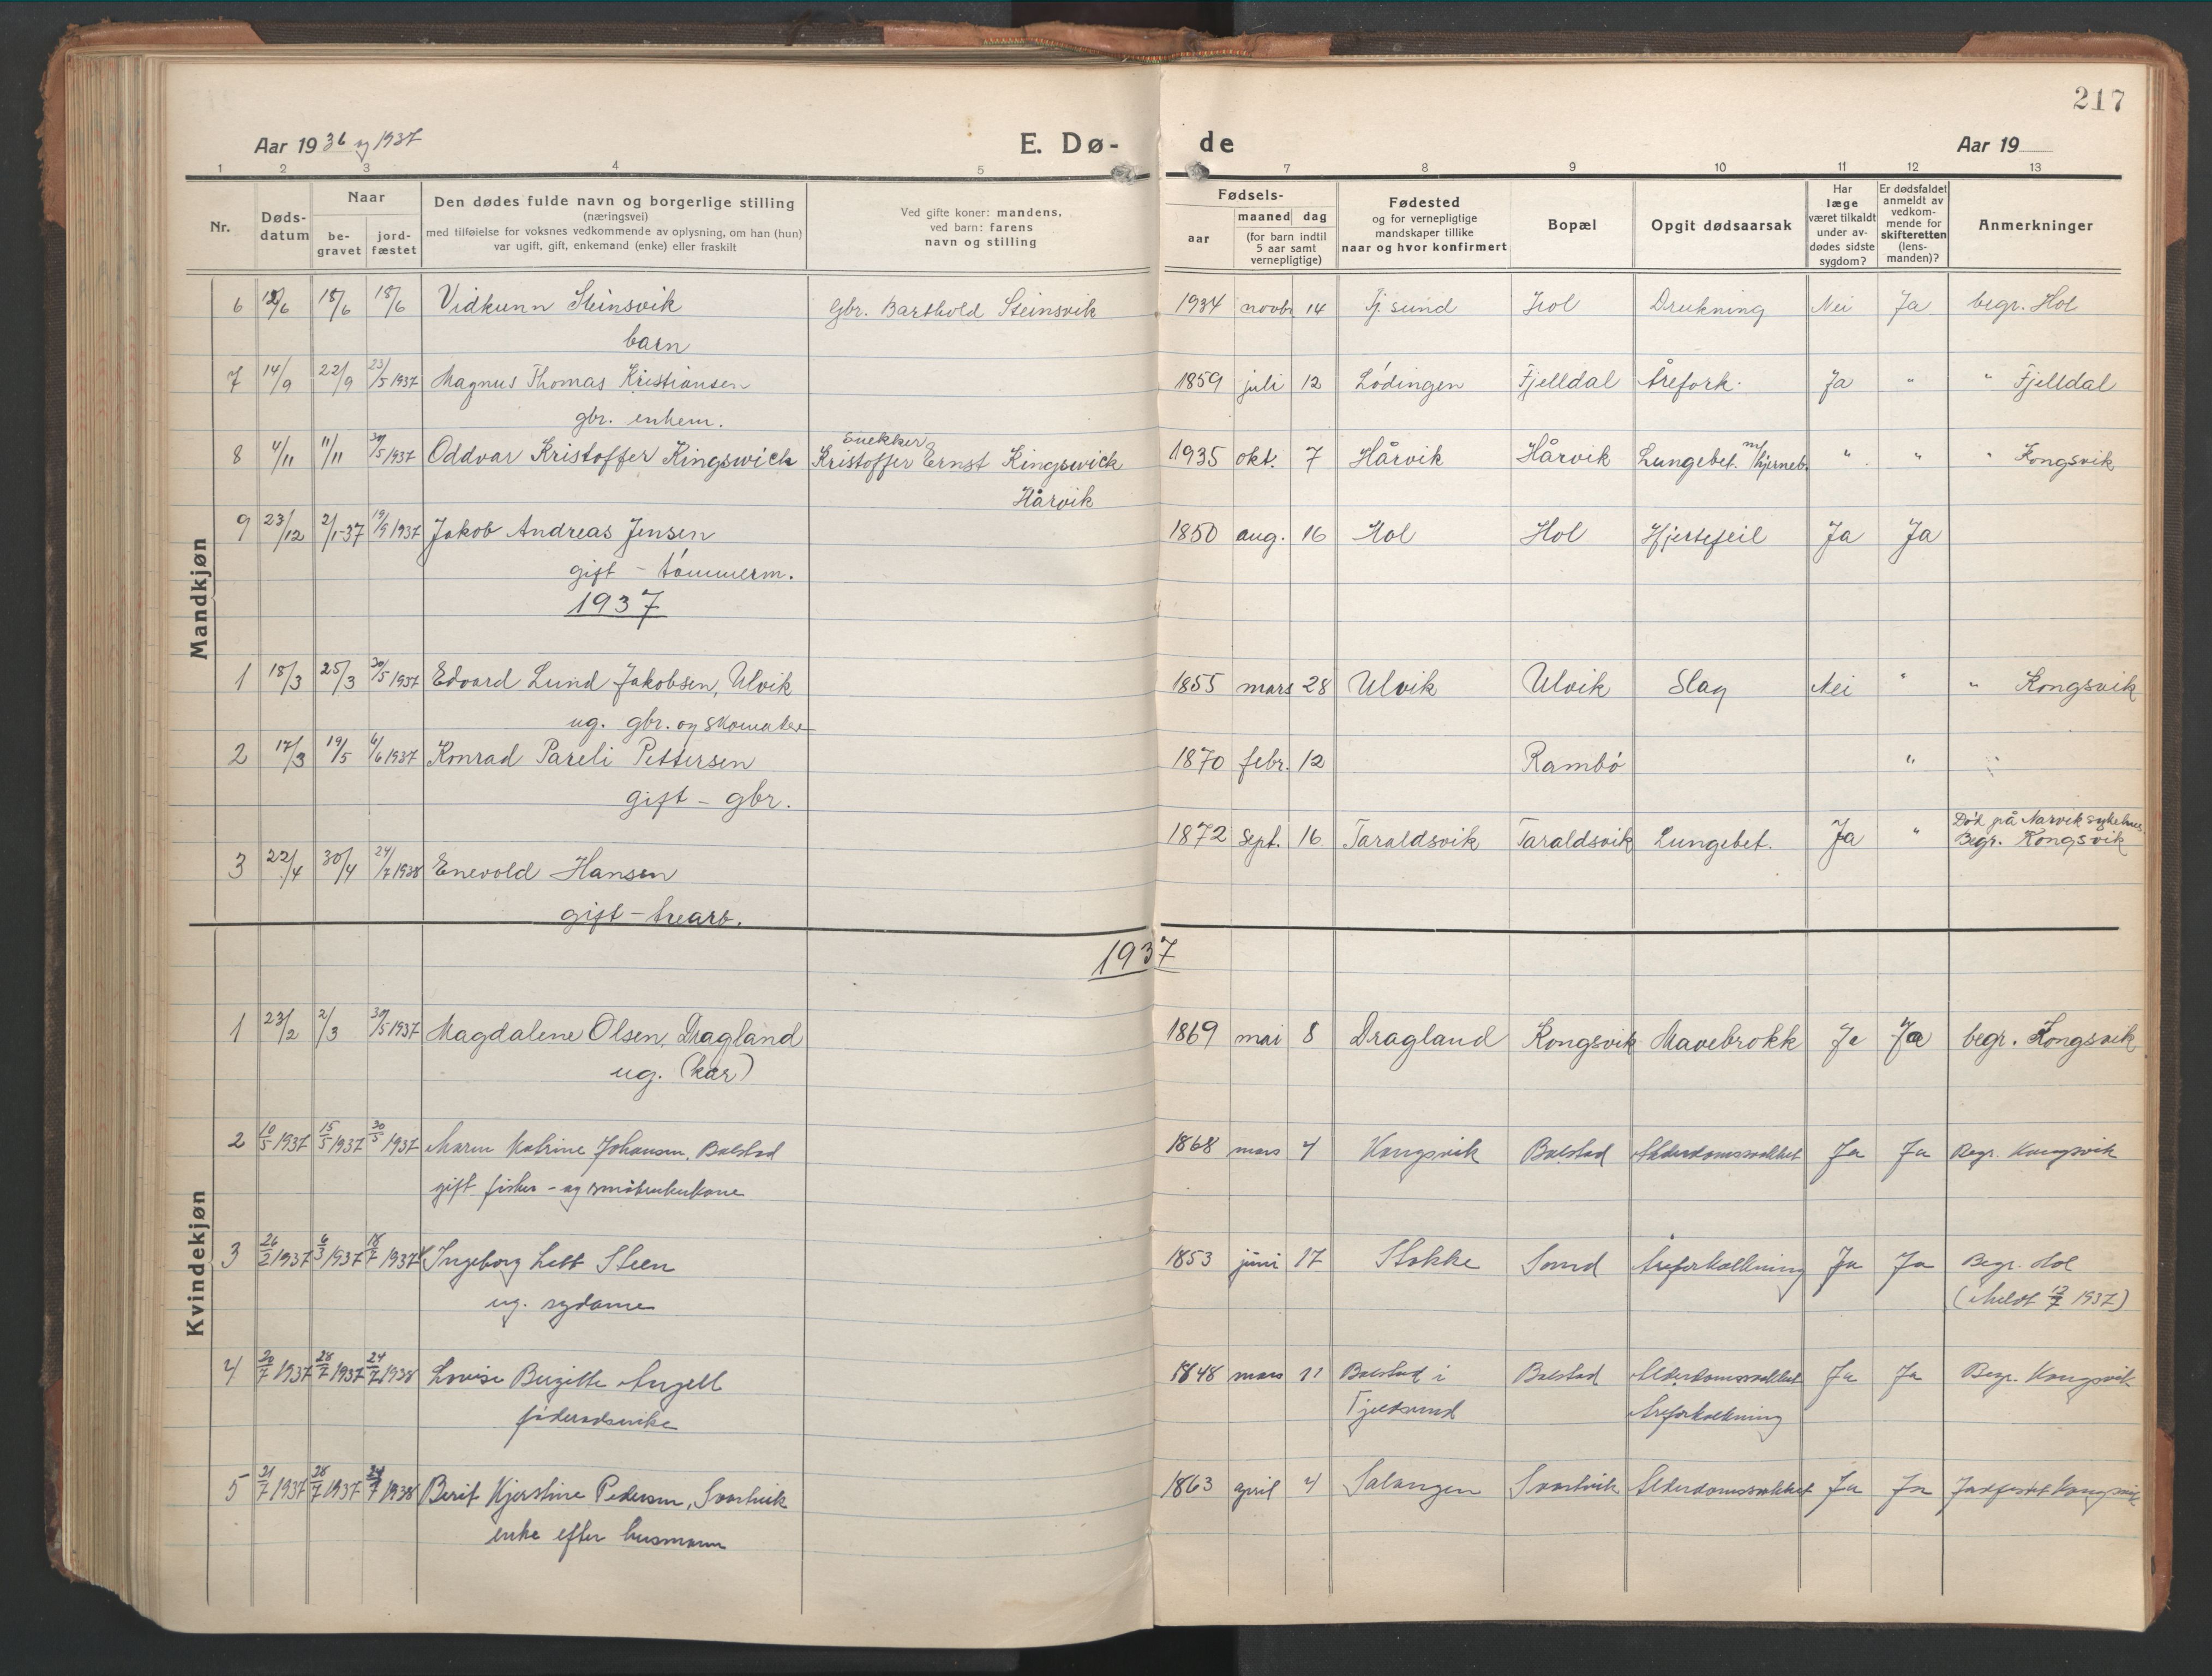 217
Aar 1936 og 1937 E. Dø- de Aar 19
1 2 3 4 5 7 8 9 10 11 12 13
Nr.
Døds-
datum
Naar
be-
gravet
jord-
fæstet
Den dødes fulde navn og borgerlige stilling
(næringsvei)
med tilføielse for voksnes vedkommende av oplysning, om han (hun)
var ugift, gift, enkemand (enke) eller fraskilt
Ved gifte koner: mandens,
ved barn: farens
navn og stilling
Fødsels-
aar
maaned dag
(for barn indtil
5 aar samt
vernepligtige)
Fødested
og for vernepligtige
mandskaper tillike
naar og hvor konfirmert
Bopæl
Opgit dødsaarsak
Har
læge
været tilkaldt
under av-
dødes sidste
sygdom?
Er dødsfaldet
anmeldt av
vedkom-
mende for
skifteretten
(lens-
manden)?
Anmerkninger
Mandkjøn
6 12/6 18/6 18/6 Vidkunn Steinsvik Gbr. Barthold Steinsvik 1934 novb 14 Tj. sund Hol Drukning Nei Ja begr. Hol
barn
7 14/9 22/9 23/5 1937 Magnus Thomas Kristiansen 1859 juli 12 Lødingen Fjelldal Årefork. Ja " " Fjelldal
gbr. enkem.
Snekker
8 4/11 11/11 30/5 1937 Oddvar Kristoffer Kingswick Kristoffer Ernst Kingswick 1935 okt. 7 Hårvik Hårvik Lungebet. m/hjerneb. " " " Kongsvik
Hårvik
9 23/12 2/1-37 19/9 1937 Jakob Andreas Jensen 1850 aug. 16 Hol Hol Hjertefeil Ja Ja
gift - tømmerm.
1937
1 18/3 25/3 30/5 1937 Edvard Lund Jakobsen, Ulvik 1855 mars 28 Ulvik Ulvik Slag Nei " " Kongsvik
ug. gbr. og skomaker
2 17/3 19/5 6/6 1937 Konrad Pareli Pettersen 1870 febr. 12 Rambø " "
gift - gbr.
3 22/4 30/4 24/7 1938 Enevold Hansen 1872 sept. 16 Taraldsvik Taraldsvik Lungebet. Ja " Død på Narvik sykehus.
Begr. Kongsvik
gift - trearb.
1937
Kvindekjøn
1 23/2 2/3 30/5 1937 Magdalene Olsen, Dragland 1869 mai 8 Dragland Kongsvik Mavebrokk Ja Ja begr. Kongsvik
ug. (kår)
2 10/5 1937 15/5 1937 30/5 1937 Maren Katrine Johansen, Balstad 1868 mars 4 Kongsvik Balstad Alderdomssvakhet Ja Ja Begr. Kongsvik
gift fisker- og småbrukerkone
3 26/2 1937 6/3 1937 18/7 1937 Ingeborg Steen 1853 juni 17 Stokke Sand Åreforkalkning Ja Ja Begr. Hol
ug. sydame (Meldt 12/7 1937)
4 20/7 1937 28/7 1937 24/7 1938 Lovise Birgitte Angell 1848 mars 11 Balstad i Balstad Alderdomssvakhet Ja Ja Begr. Kongsvik
føderådsenke Tjeldsund Åreforkalkning
5 21/7 1937 28/7 1937 24/7 1938 Berit Kjerstine Pedersen, Svartvik 1863 april 4 Salangen Svartvik Alderdomssvakhet Ja Ja Jordfestet Kongsvik
enke efter husmann